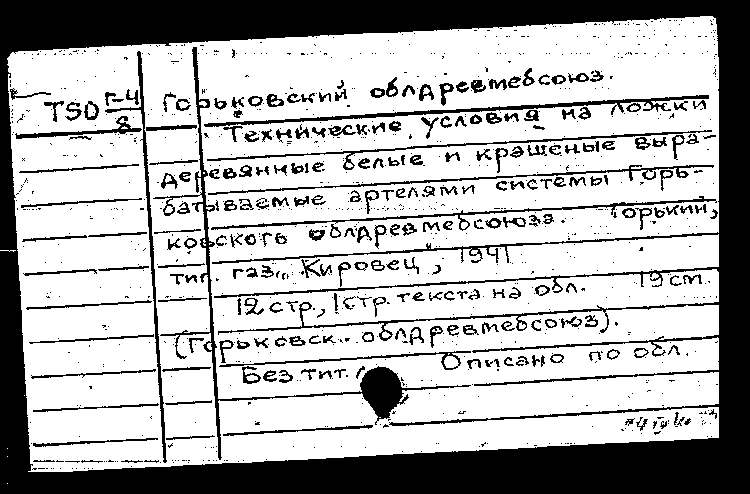 TSO Г-4/8 Горьковский облдревмебсоюз.
Технические условия на ложки
деревянные белые и крашеные выра-
батываемые артелями системы Горь-
ковского облдревмебсоюза. Горький,
тип. газ. „Кировец", 1941
12 стр., 1 стр. текста на обл. 19 см.
(Горьковск. облдревмебсоюз).
Без тит. Описано по обл.